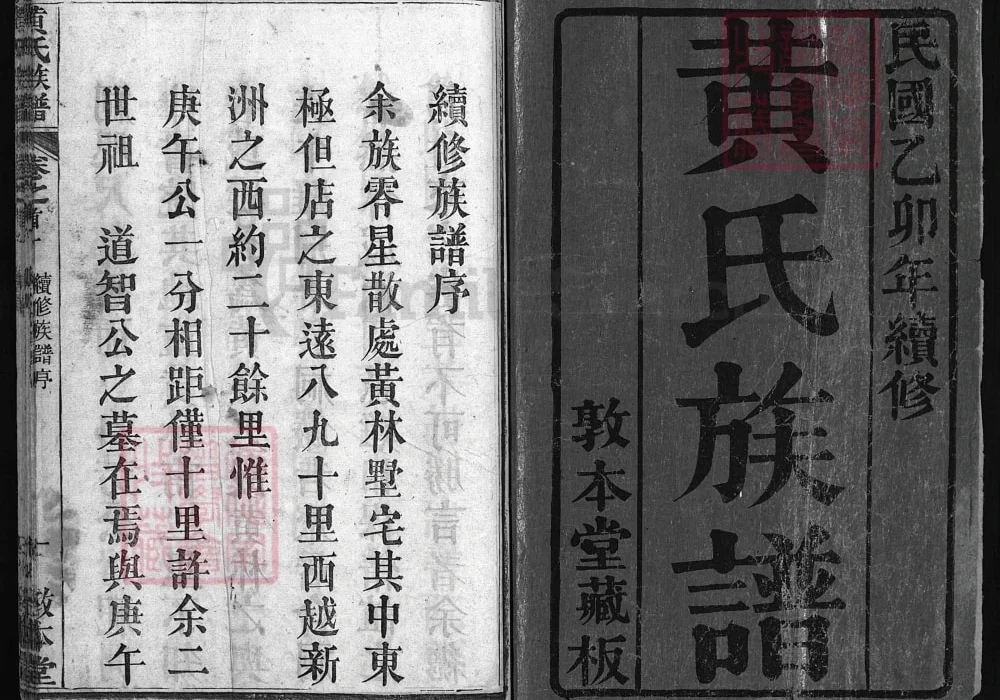 民國乙卯年續修
黃氏族譜
敦本堂藏板
續修族譜序
余族零星散處黃林墅宅其中東
極但店之東遠八九十里西越新
洲之西約二十餘里惟
庚午公一分相距僅十里許余二
世祖　道智公之墓在焉與庚午
黃氏族譜
卷之首
續修族譜序
一
敦本堂